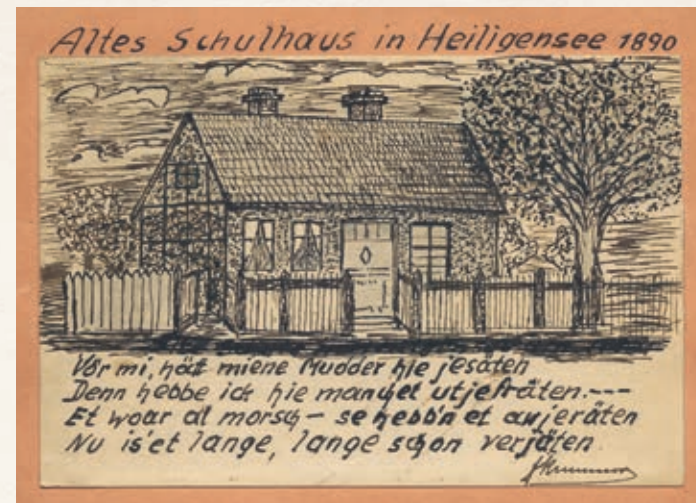 Altes Schulhaus in Heiligensee 1890
Vör mi, hät miene Mudder hie jesäten
Denn hebbe ick hie manchet utjefräten.---
Et woar al morsch – se hebb'n et awjeräten
Nu is'et lange, lange schon verjäten.